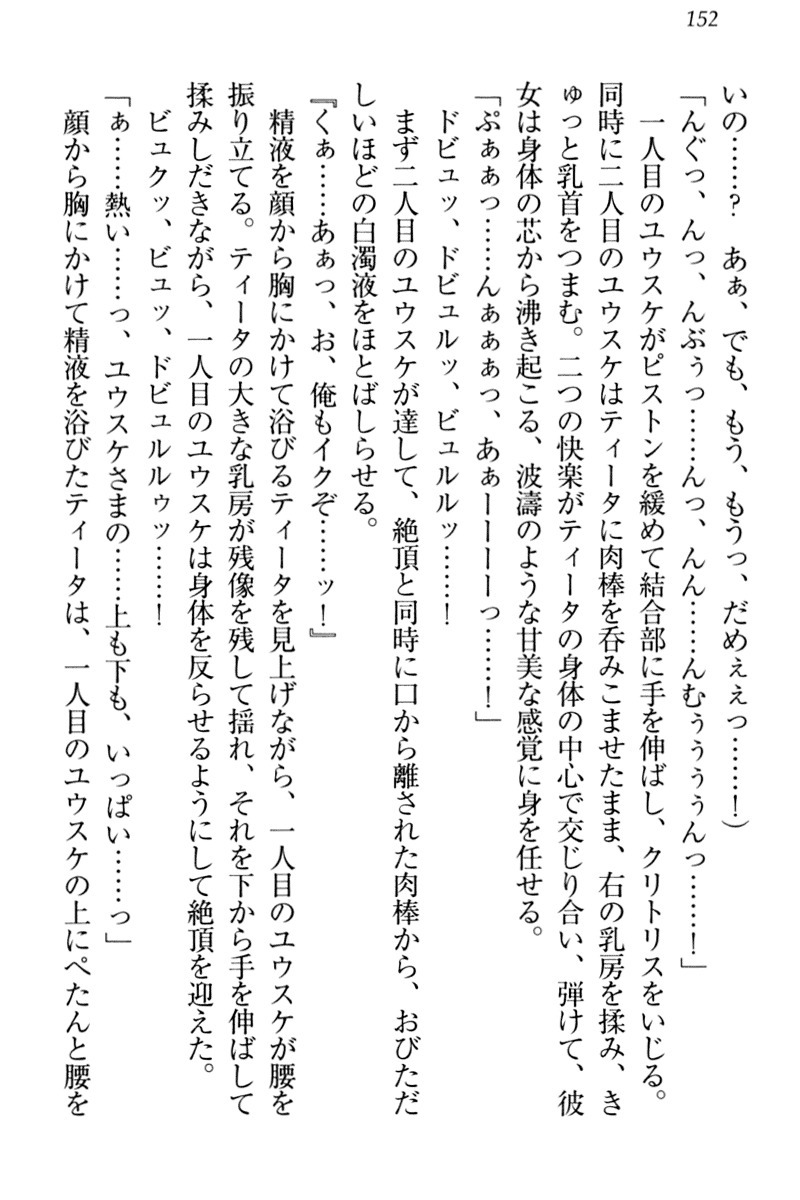 152
いの……？　あぁ、でも、もう、もうっ、だめぇぇっ……！）
「んぐっ、んっ、んぶぅっ……んっ、んん……んむぅぅぅぅんっ……！」
　一人目のユウスケがピストンを緩めて結合部に手を伸ばし、クリトリスをいじる。
同時に二人目のユウスケはティータに肉棒を呑みこませたまま、右の乳房を揉み、き
ゅっと乳首をつまむ。二つの快楽がティータの身体の中心で交じり合い、弾けて、彼
女は身体の芯から沸き起こる、波濤のような甘美な感覚に身を任せる。
「ぷぁぁっ……んぁぁぁっ、あぁーーーーっ……！」
　ドビュッ、ドビュルッ、ビュルルッ……！
　まず二人目のユウスケが達して、絶頂と同時に口から離された肉棒から、おびただ
しいほどの白濁液をほとばしらせる。
『くぁ……あぁっ、お、俺もイクぞ……ッ！』
　精液を顔から胸にかけて浴びるティータを見上げながら、一人目のユウスケが腰を
振り立てる。ティータの大きな乳房が残像を残して揺れ、それを下から手を伸ばして
揉みしだきながら、一人目のユウスケは身体を反らせるようにして絶頂を迎えた。
　ビュクッ、ビュッ、ドビュルルゥッ……！
「ぁ……熱い……っ、ユウスケさまの……上も下も、いっぱい……っ」
　顔から胸にかけて精液を浴びたティータは、一人目のユウスケの上にぺたんと腰を